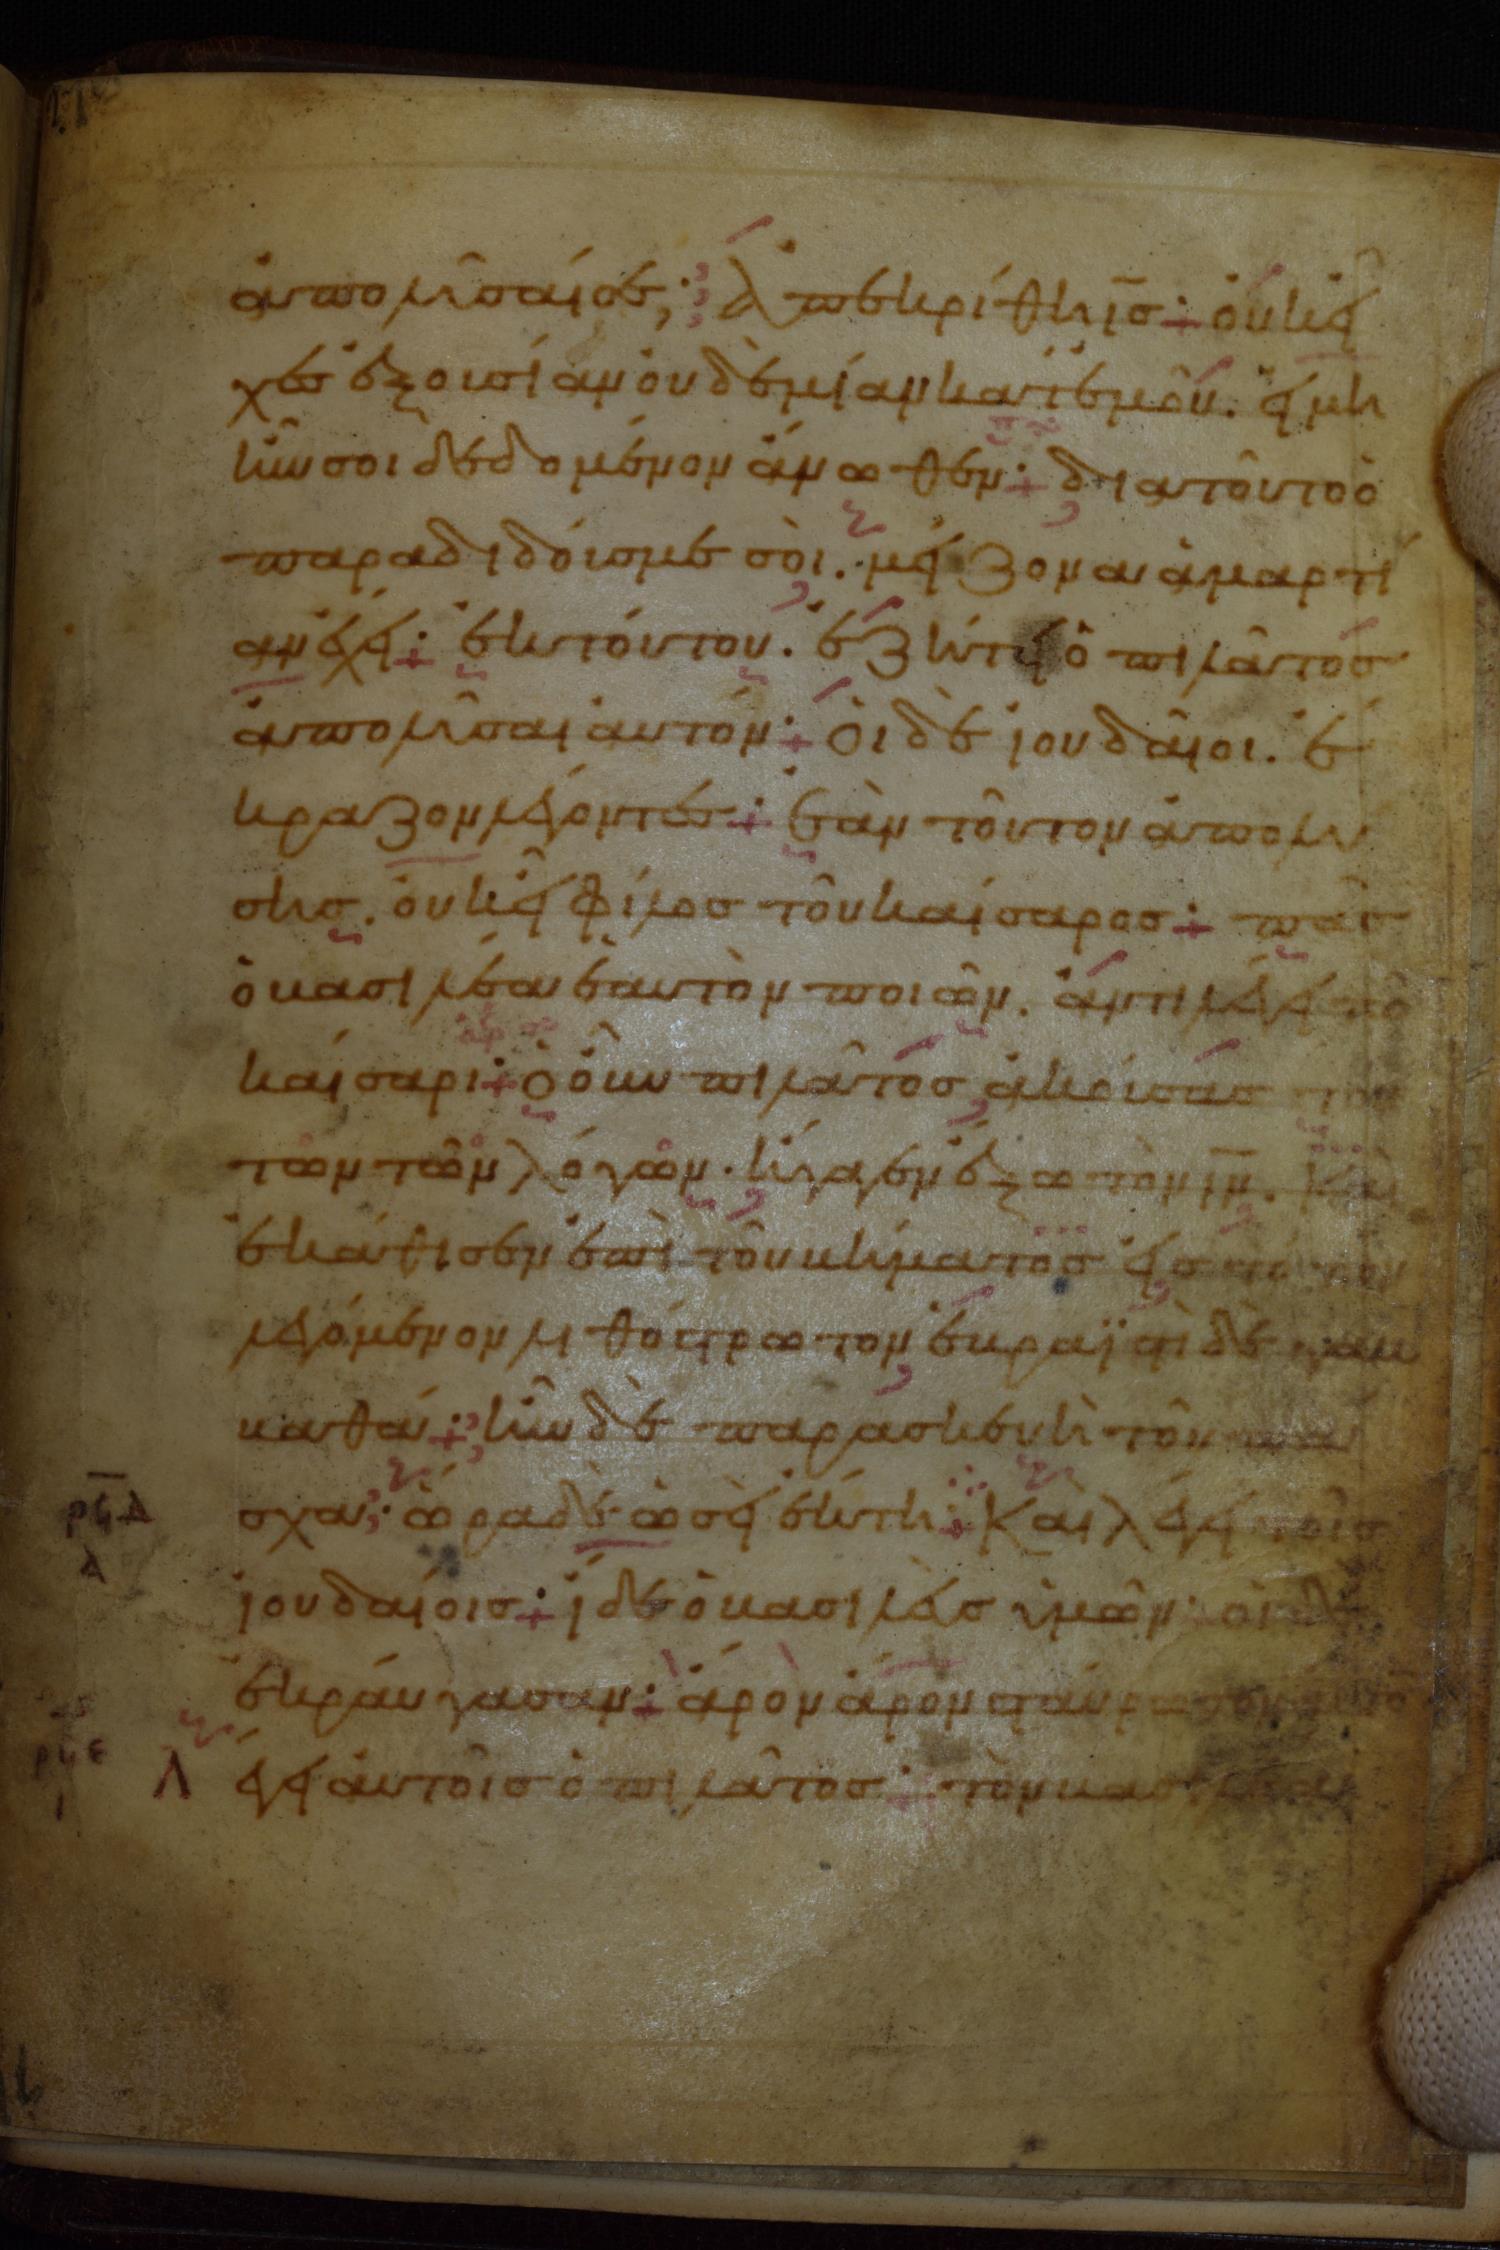 ἀπολῦσαί σε; Ἀπεκρίθη ι̅ς̅· οὐκ εἶ
χες ἐξουσίαν οὐδεμίαν κατ' ἐμοῦ. εἰ μὴ
ἦν σοι δεδομένον ἄνωθεν· διατοῦτο ὁ
παραδιδούς με σοὶ. μείζονα ἁμαρτί
αν ἔχει· ἐκ τούτου. ἐζήτει ὁ πιλᾶτος
ἀπολῦσαι αὐτόν· Οἱ δὲ ἰουδαῖοι. ἔ
κραζον λέγοντες· ἐὰν τοῦτον ἀπολύ
σης. οὐκ εἶ φίλος τοῦ καίσαρος· πᾶς
ὁ βασιλέα ἑαυτὸν ποιῶν. ἀντιλέγει τῶ
καίσαρι· ὁ οὖν πιλᾶτος ἀκούσας τού
των τῶν λόγων. ἤγαγεν ἔξω τὸν ι̅ν̅. Καὶ
ἐκάθισεν ἐπὶ τοῦ βήματος εἰς τόπον
λεγόμενον λιθόστρωτον ἑβραϊστὶ δὲ γαβ
βαθά· ἦν δὲ παρασκευὴ τοῦ πά
σχα· ὥρα δὲ ὡσεὶ ἕκτη· Καὶ λέγει τοῖς
ρϟδ
α
ἰουδαίοις· ἴδε ὁ βασιλεὺς ὑμῶν· οἱ δὲ
ἐκραύγασαν· ἆρον ἆρον σταύρωσον αὐτό
ρϟε
ι
Λέγει αὐτοῖς ὁ πιλᾶτος· τὸν βασιλέα